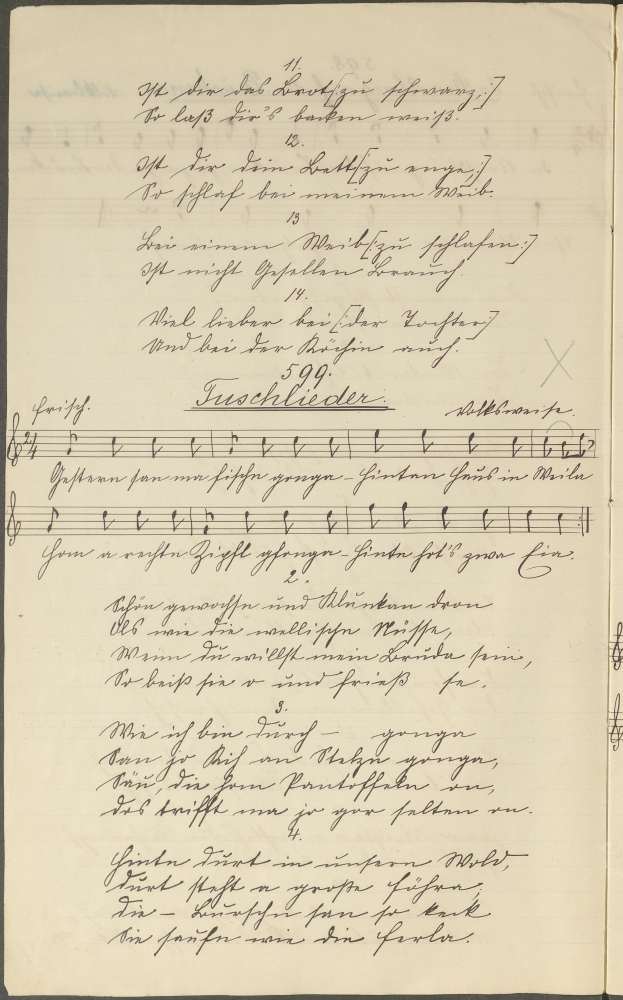 11.
Ist dir das Brot [:zu schwarz,:]
So laß dir's backen weiß.
12.
Ist dir dein Bett [:zu enge,:]
So schlaf bei meinem Weib.
13
Bei einem Weib [:zu schlafen:]
Ist nicht Gesellen Brauch.
14.
Viel lieber bei [:der Tochter:]
Und bei der Köchin auch.
599.
Tuschlieder.
Frisch. Volksweise.
2/4
Gestern san ma fischn gonga – hintan Haus in Weila
Hom a rechtn Zipfl gfonga – hintn hot's zwa Eia.
2.
Schön gewochsn und Klunkan dron
Ols wie die wellischn Nüsse,
Wenn du willst mein Bruda sein,
So beiß sie o und frieß se.
3.
Wie ich bin durch – gonga
San jo Kih an Stelzn gonga,
Säu, die hom Pantoffeln on,
Dos trifft ma jo gor selten on.
4.
Hintn durt in unsern Wold,
Durt steht a große Föhra;
Die – Burschn san so keck
Sie saufn wie die Ferla.